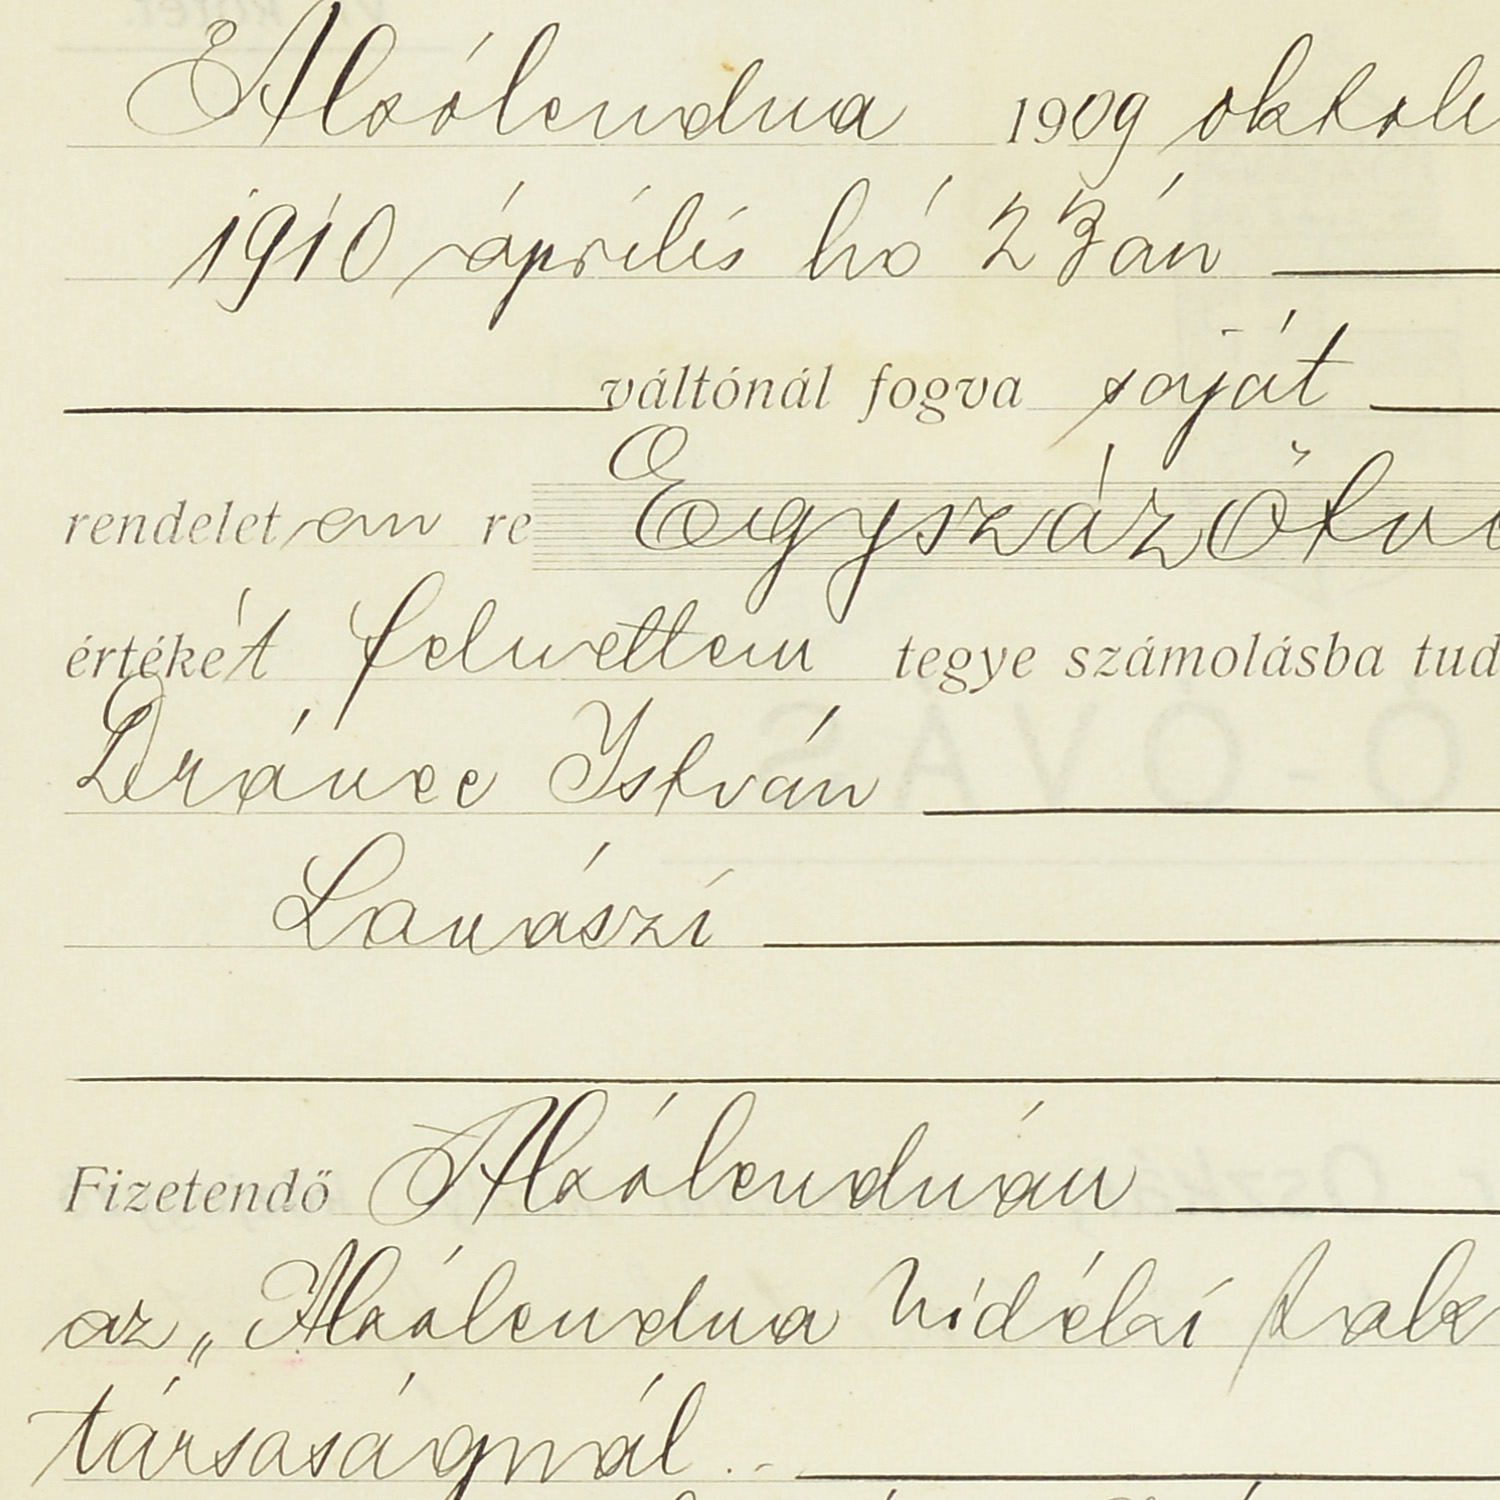 Alsólendva 1909 októb
1910 április hó 23án
váltónál fogva saját
rendeletem re Egyszázötve
értékét felvettem tegye számolásba tud
Drávec István
Lavászi
Fizetendő Alsólendván
az „Alsólendva Vidéki tak
társaságnál